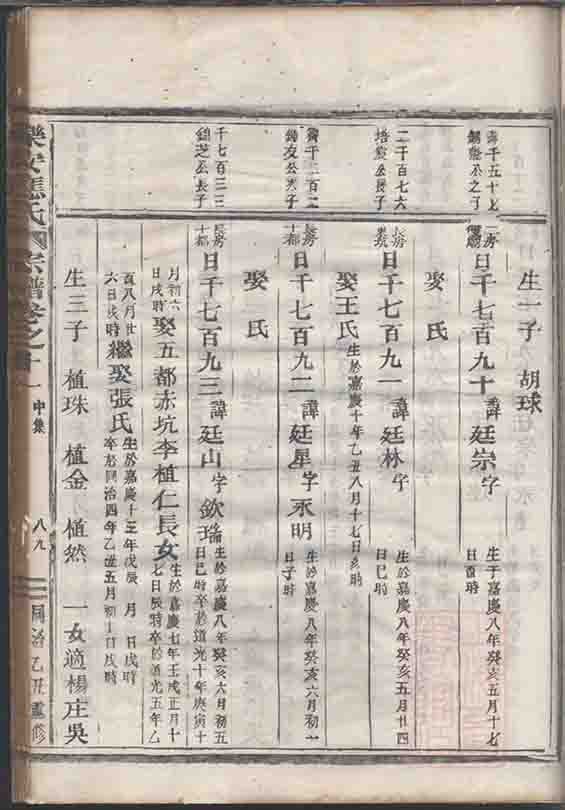 生一子 胡球
壽千五十七
二房
日千七百九十 諱廷宗 字
生于嘉慶八年癸亥五月十七
日酉時
娶 氏
二千百七六
培 公長子
長房
日千七百九一 諱廷林 字
生於嘉慶八年癸亥五月廿四
日巳時
娶王氏 生於嘉慶十年乙丑八月十七日亥時
錫友公 子
長房
十都
日千七百九二 諱廷星 字永明
生於嘉慶八年癸亥六月初一
日子時
娶 氏
千七百三三
錦芝公長子
長房
十都
日千七百九三 諱廷山 字欽瑞
生於嘉慶八年癸亥六月初五
日巳時卒於道光十年庚寅十
月初六
日戌時
娶五都赤坑李植仁長女
生於嘉慶七年壬戌正月十
七日辰時卒於道光五年乙
酉八月廿
六日戌時
繼娶張氏
生於嘉慶十三年戊辰 月 日戌時
卒於同治四年乙丑五月初十日戌時
生三子 植珠 植金 植然 一女適楊庄吳
樂安 氏 宗譜卷之十一 中集 八九 同治乙丑重修